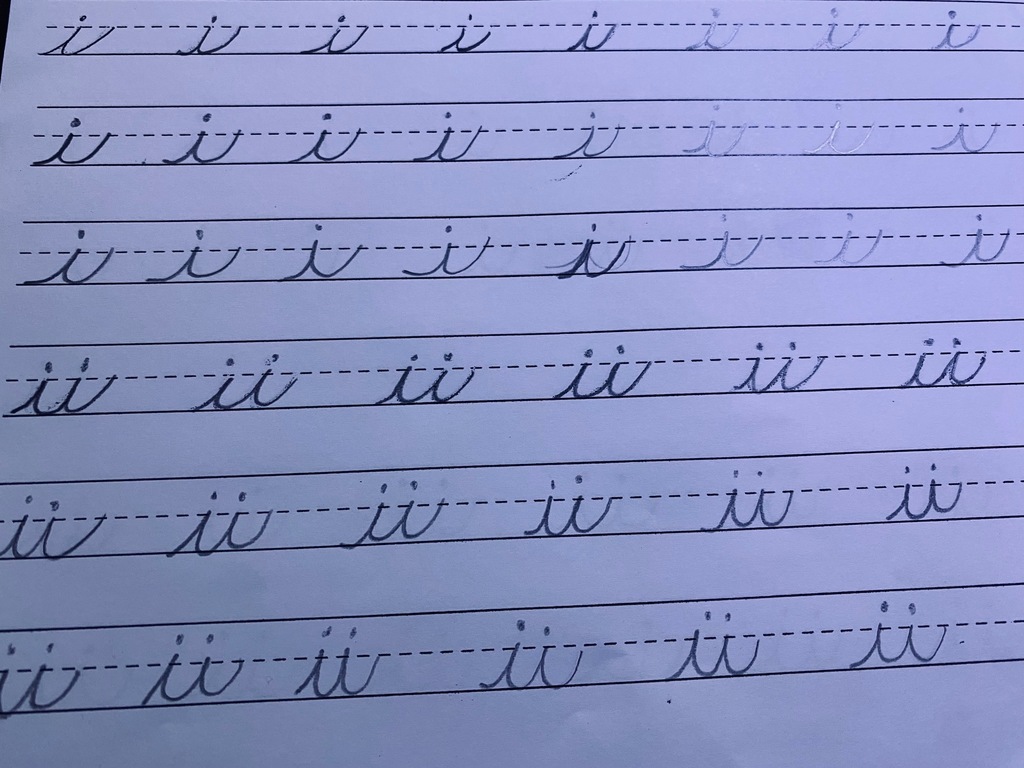 i i i i i i i i
i i i i i i i i
i i i i i i i i
ii ii ii ii ii ii
ii ii ii ii ii ii
ii ii ii ii ii ii